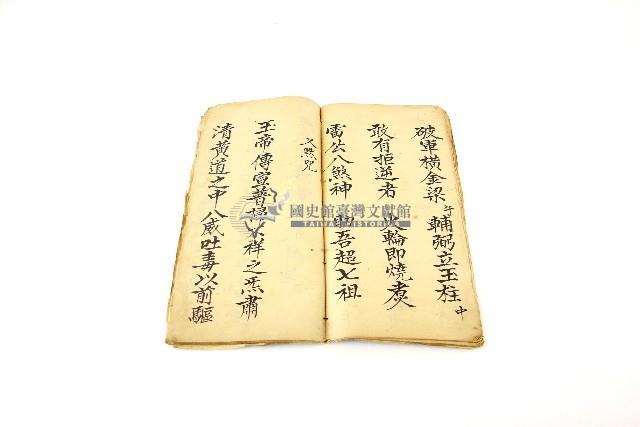 破軍横金梁 輔弼立玉柱 中
敢有拒逆者 火輪即燒
雷公八煞神 吾超七祖
文煞咒
玉帝傳宣普掃不祥之炁肅
清黃道之中八威吐毒以前驅
國史館臺灣文獻館
TAIWAN HISTORICA